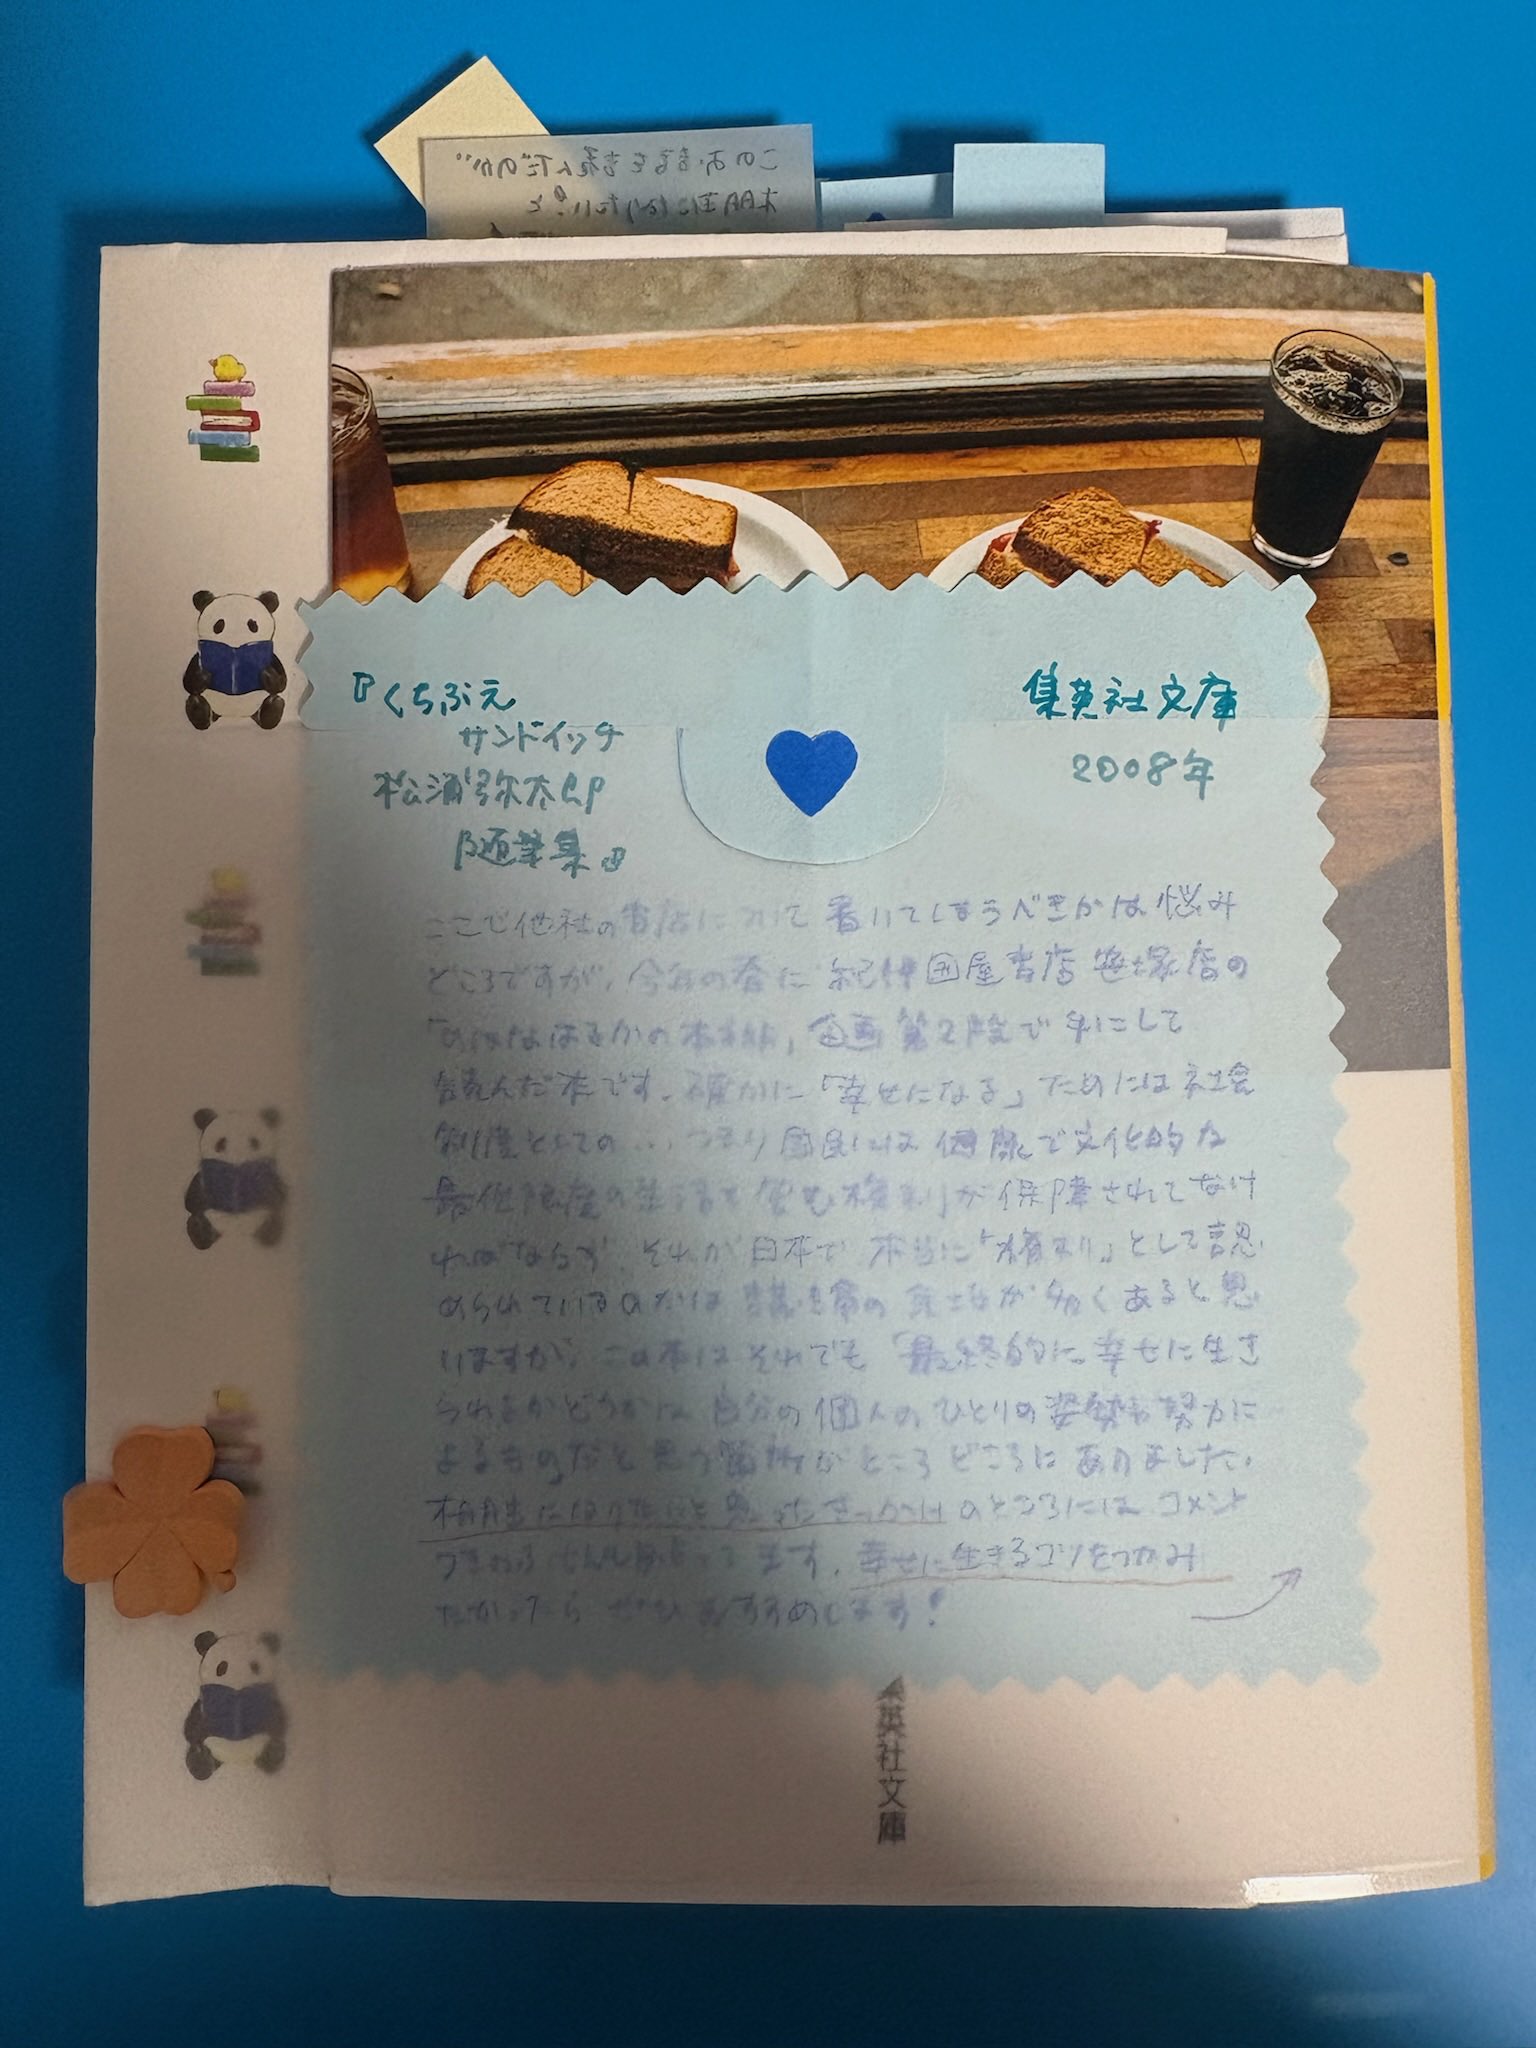 『くちぶえ
サンドイッチ
松浦弥太郎
随筆集』
集英社文庫
2008年
ここで他社の書店について書いてしまうべきかは悩み
どころですが、今年の春に紀伊國屋書店笹塚店の
本棚」企画第2段で手にして
読んだ本です。確かに「幸せになる」ためには社会
制度としての…つまり国民には健康で文化的な
最低限度の生活を営む権利」が保障されてなけ
ればならず、それが日本で本当に「権利」として認
められているのかは議論の余地が多くあると思
いますが、この本はそれでも「最終的に幸せに生き
られるかどうかは自分の個人のひとりの姿勢や努力に
よるもの」だと思う箇所がところどころにありました。
と思ったきっかけのところには コメント
ます。幸せに生きるコツをつかみ
たかったらぜひおすすめします!
集英社文庫